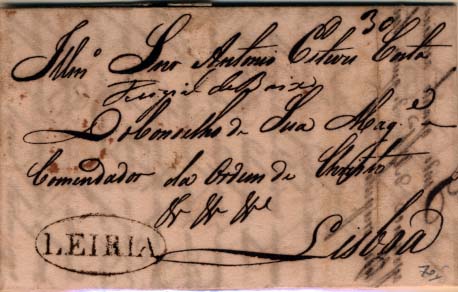 Illmo Snr Antonio Esteves Costa
Do Concelho de Sua Mag.e
Comendador da Ordem de Christo
&c &c &c
LEIRIA
Lisboa